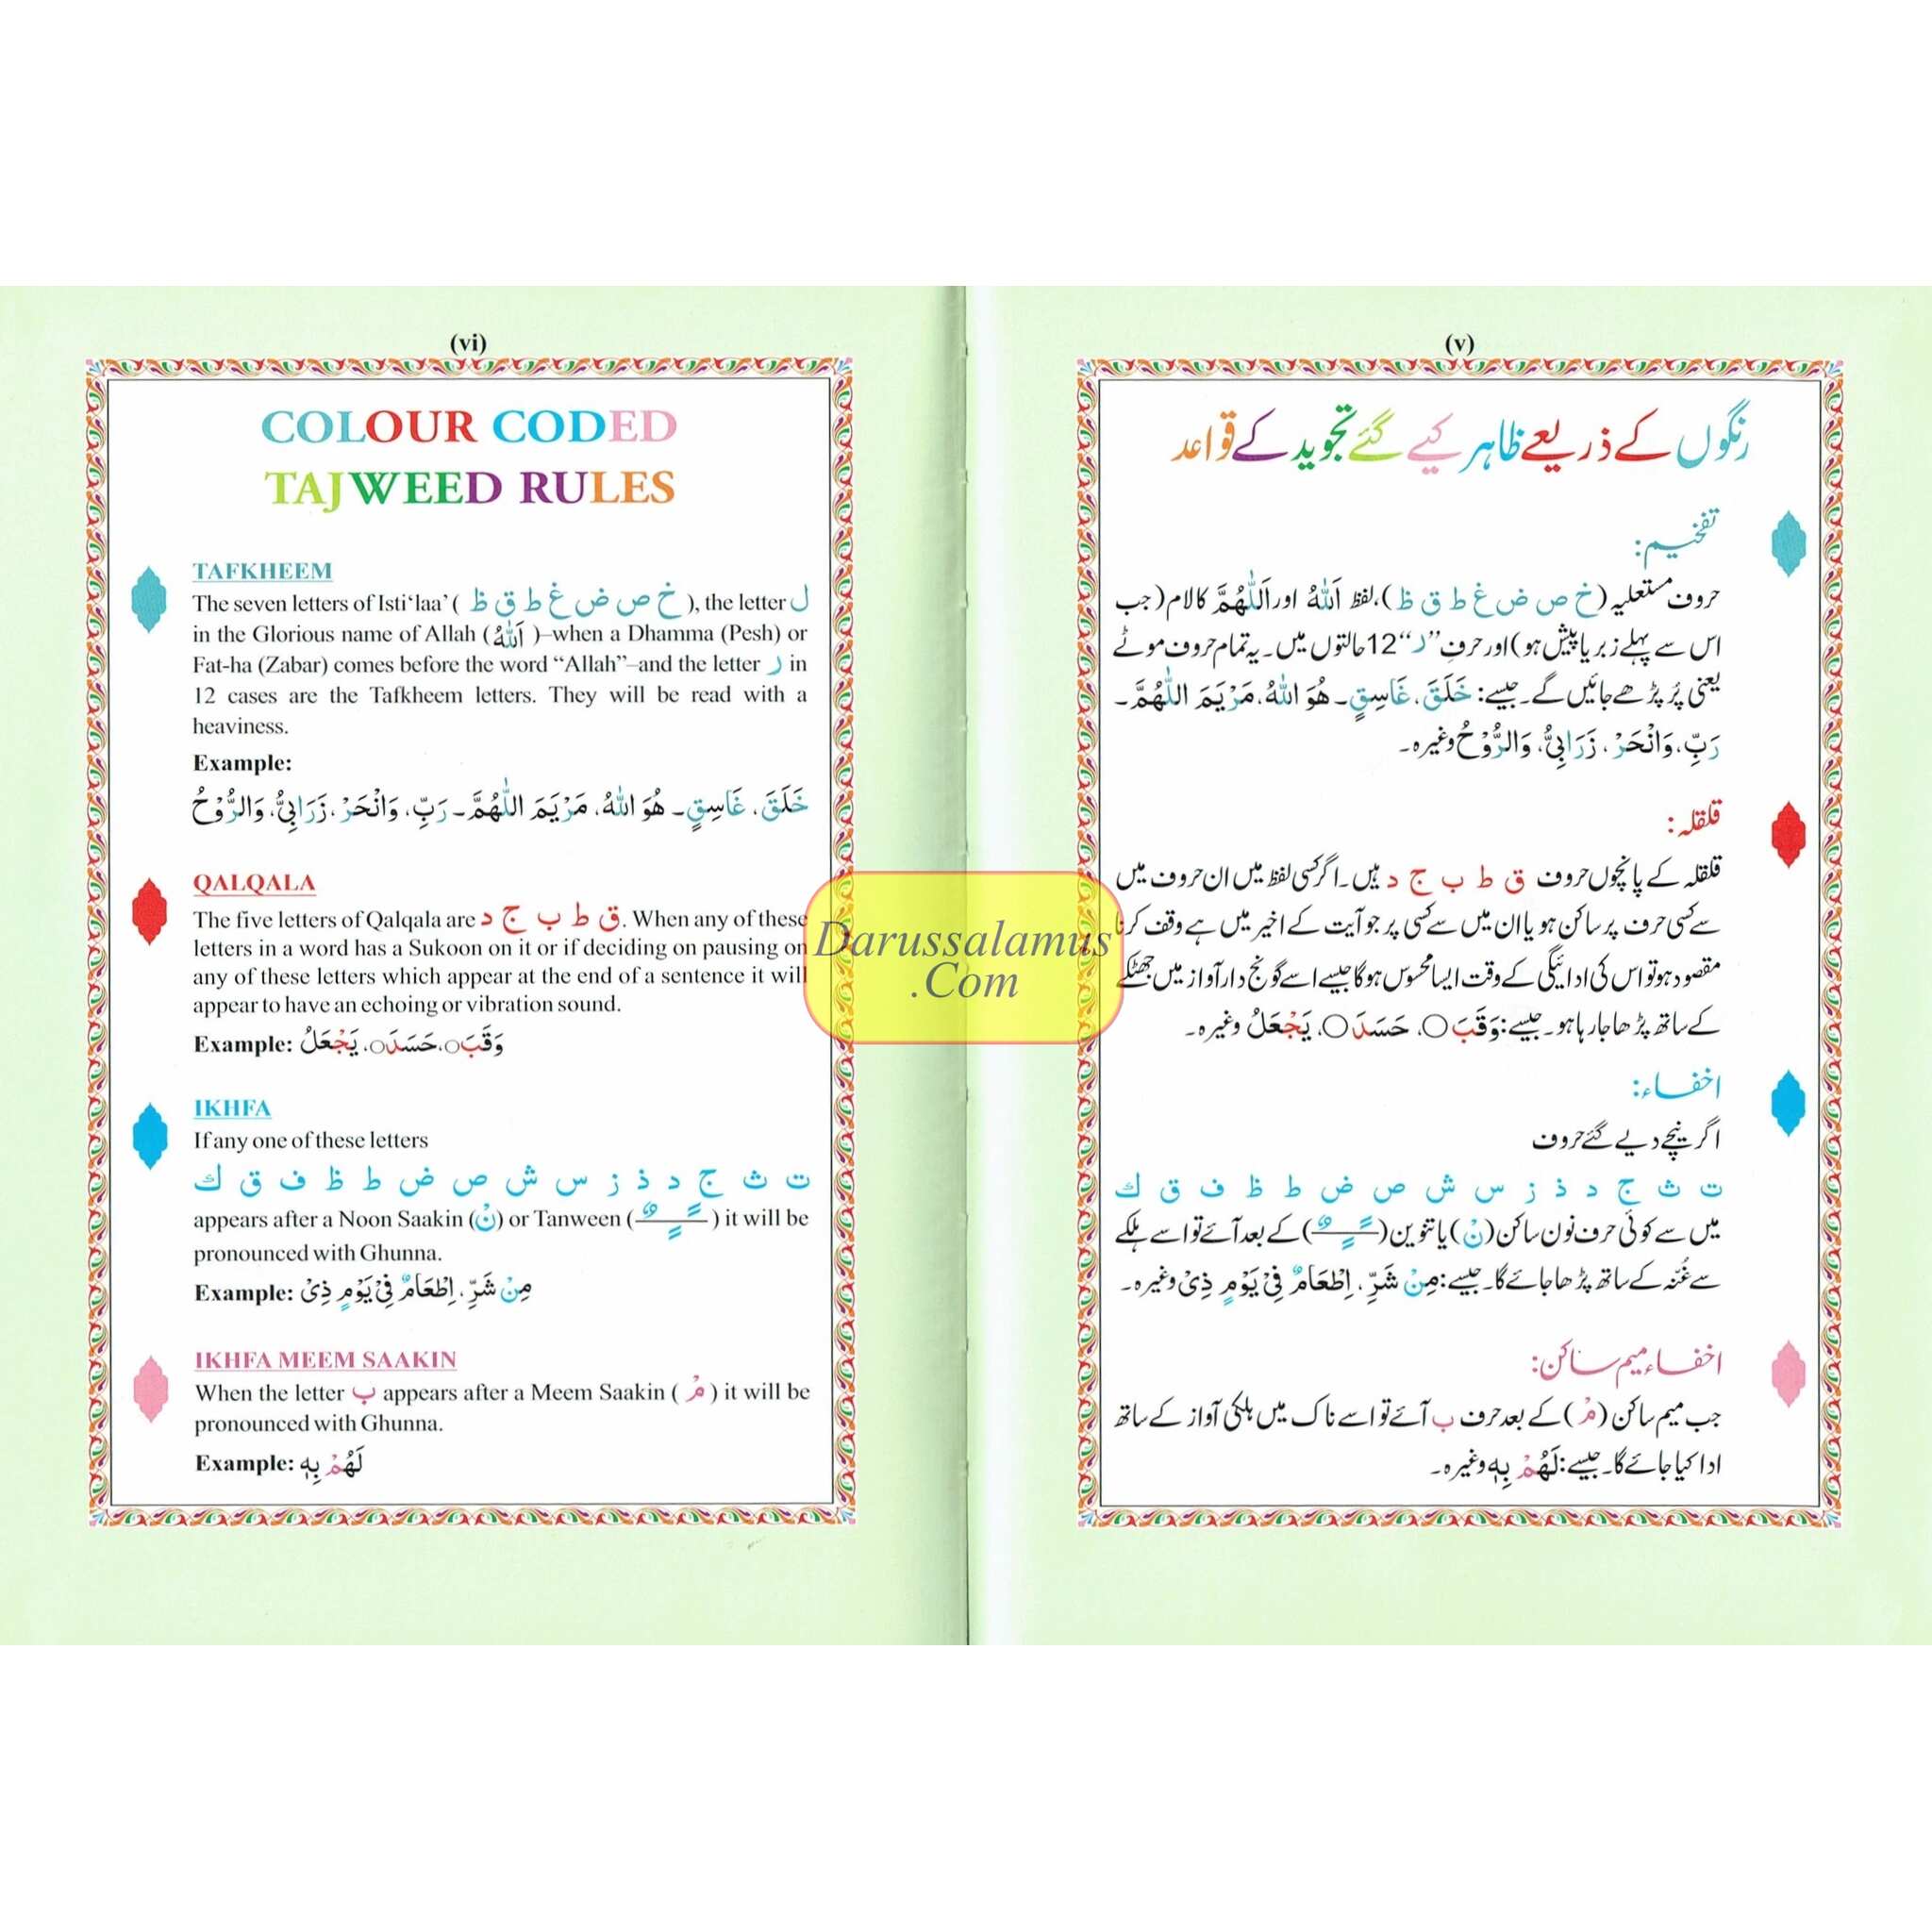 (vi)
COLOUR CODED
TAJWEED RULES
TAFKHEEM
The seven letters of Isti‘laa’ ( خ ص ض غ ط ق ظ ), the letter ل
in the Glorious name of Allah (اَللّٰهُ )–when a Dhamma (Pesh) or
Fat-ha (Zabar) comes before the word “Allah”–and the letter ر in
12 cases are the Tafkheem letters. They will be read with a
heaviness.
Example:
خَلَقَ، غَاسِقٍ۔ هُوَ اللّٰهُ، مَرْيَمَ اللّٰهُمَّ۔ رَبِّ، وَانْحَرْ، زَرَابِيُّ، وَالرُّوْحُ
QALQALA
The five letters of Qalqala are ق ط ب ج د. When any of these
letters in a word has a Sukoon on it or if deciding on pausing on
any of these letters which appear at the end of a sentence it will
appear to have an echoing or vibration sound.
Example: وَقَبَ○، حَسَدَ○، يَجْعَلُ
IKHFA
If any one of these letters
ت ث ج د ذ ز س ش ص ض ط ظ ف ق ك
appears after a Noon Saakin (نْ) or Tanween ( ـًـٍـٌ ) it will be
pronounced with Ghunna.
Example: مِنْ شَرِّ، اِطْعَامٌ فِيْ يَوْمٍ ذِيْ
IKHFA MEEM SAAKIN
When the letter ب appears after a Meem Saakin ( مْ ) it will be
pronounced with Ghunna.
Example: لَهُمْ بِهٖ
(v)
رنگوں کے ذریعے ظاہر کیے گئے تجوید کے قواعد
تفخیم:
حروف مستعلیہ (خ ص ض غ ط ق ظ)، لفظ اَللّٰهُ اور اَللّٰهُمَّ کا لام (جب
اس سے پہلے زبر یا پیش ہو) اور حرفِ ”ر“ 12 حالتوں میں۔ یہ تمام حروف موٹے
یعنی پُر پڑھے جائیں گے۔ جیسے: خَلَقَ، غَاسِقٍ۔ هُوَ اللّٰهُ، مَرْيَمَ اللّٰهُمَّ۔
رَبِّ، وَانْحَرْ، زَرَابِيُّ، وَالرُّوْحُ وغیرہ۔
قلقلہ:
قلقلہ کے پانچوں حروف ق ط ب ج د ہیں۔ اگر کسی لفظ میں ان حروف میں
سے کسی حرف پر ساکن ہو یا ان میں سے کسی پر جو آیت کے اخیر میں ہے وقف کرنا
مقصود ہو تو اس کی ادائیگی کے وقت ایسا محسوس ہوگا جیسے اسے گونج دار آواز میں جھٹکے
کے ساتھ پڑھا جا رہا ہو۔ جیسے: وَقَبَ○، حَسَدَ○، يَجْعَلُ وغیرہ۔
اخفاء:
اگر نیچے دیے گئے حروف
ت ث ج د ذ ز س ش ص ض ط ظ ف ق ك
میں سے کوئی حرف نون ساکن (نْ) یا تنوین (ـًـٍـٌ) کے بعد آئے تو اسے ہلکے
سے غُنّہ کے ساتھ پڑھا جائے گا۔ جیسے: مِنْ شَرِّ، اِطْعَامٌ فِيْ يَوْمٍ ذِيْ وغیرہ۔
اخفاء میم ساکن:
جب میم ساکن (مْ) کے بعد حرف ب آئے تو اسے ناک میں ہلکی آواز کے ساتھ
ادا کیا جائے گا۔ جیسے: لَهُمْ بِهٖ وغیرہ۔
Darussalamus
.Com